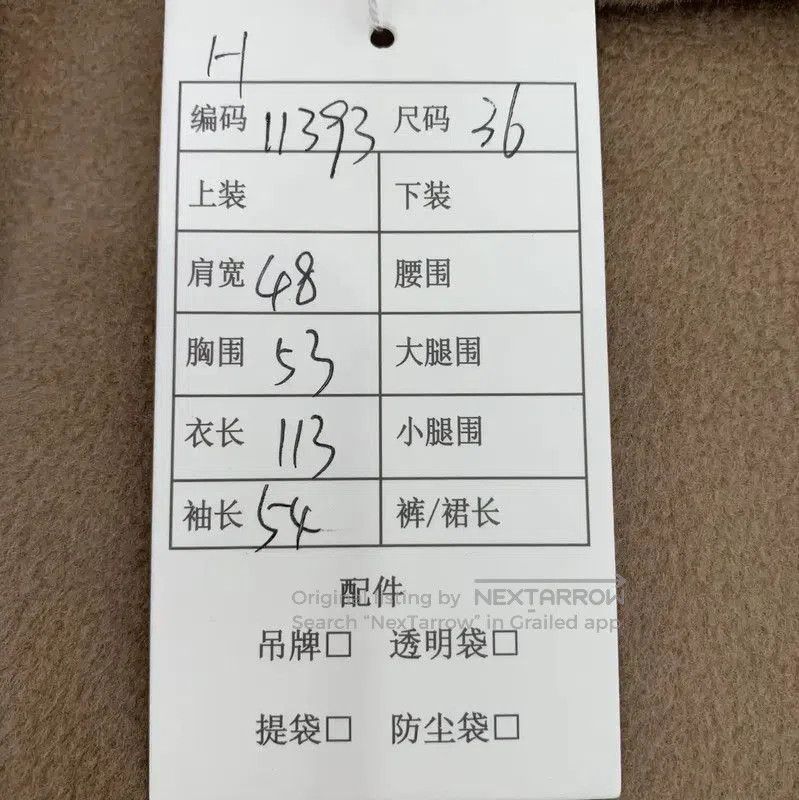 H
编码 11393 尺码 36
上装 下装
肩宽 48 腰围
胸围 53 大腿围
衣长 113 小腿围
袖长 54 裤/裙长
配件
Original listing by NEXTARROW
Search "NexTarrow" in Grailed app
吊牌□ 透明袋□
提袋□ 防尘袋□